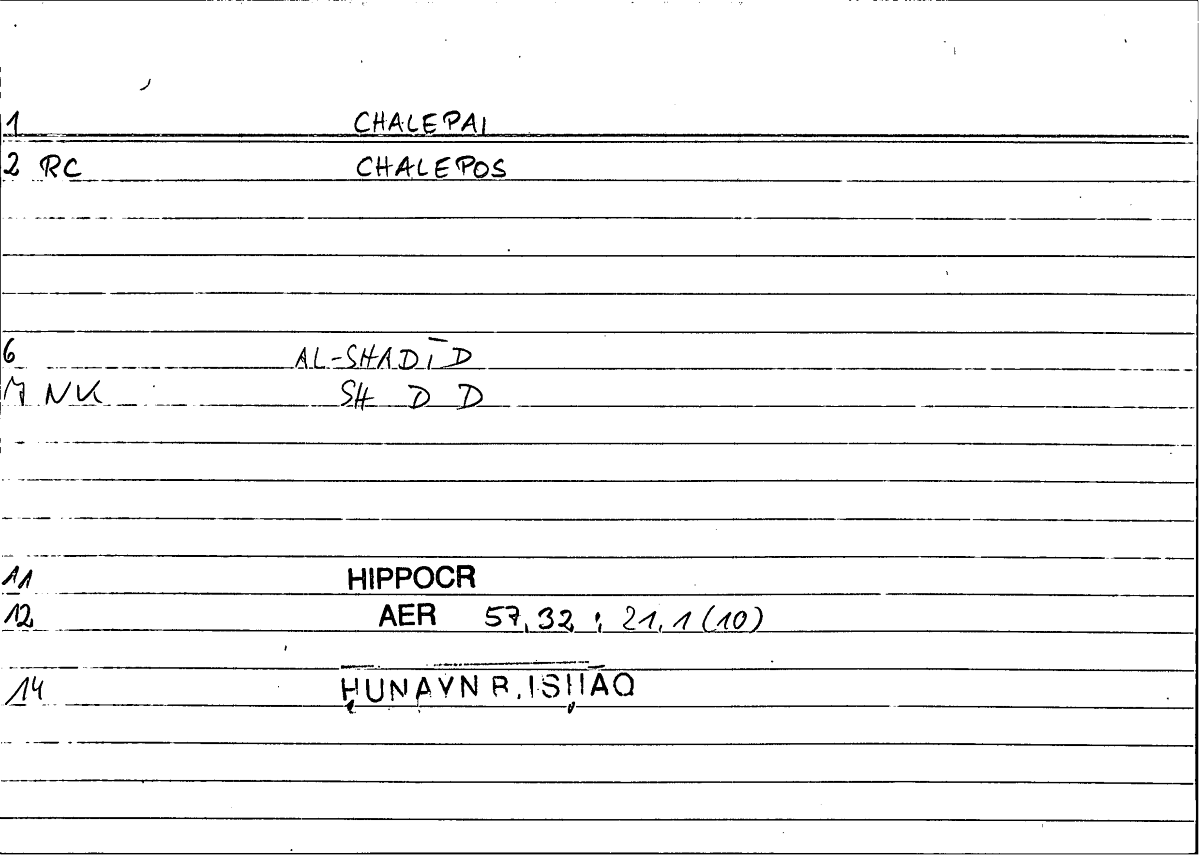 1 CHALEPAI
2 RC CHALEPOS
6 AL-SHADĪD
7 NK SH D D
11 HIPPOCR
12 AER 57,32 ; 21,1 (10)
14 ḤUNAYN B. ISḤĀQ